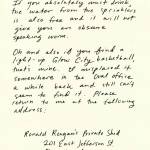 If you absolutely must drink
the water from the sprinkler
is also free and it will not
give you an obscene
speaking worm.
Oh and also if you found a
light-up Glow City basketball,
that's mine. I misplaced it
somewhere in the Oval office
a while back and still can't
seem to find it. Please
return to me at the following
address:
Ronald Reagan's Private Shed
2011 East Jefferson St